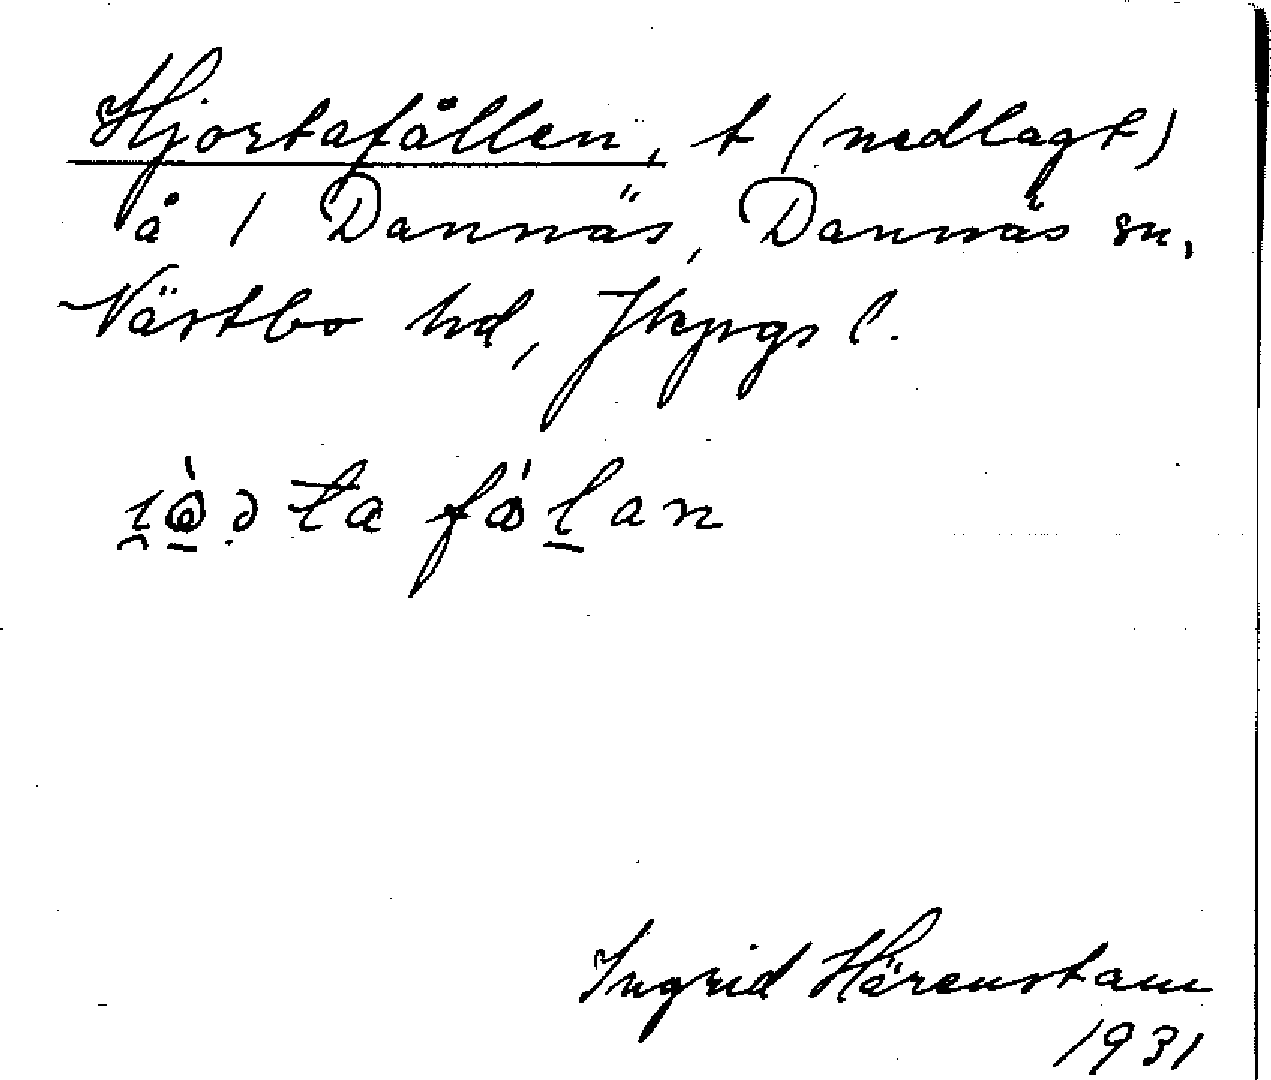 Hjortafållen, t (nedlagt)
å 1 Dannäs, Dannäs sn,
Västbo hd, Jkpgs l.
fålan
Ingrid Härenstam
1931